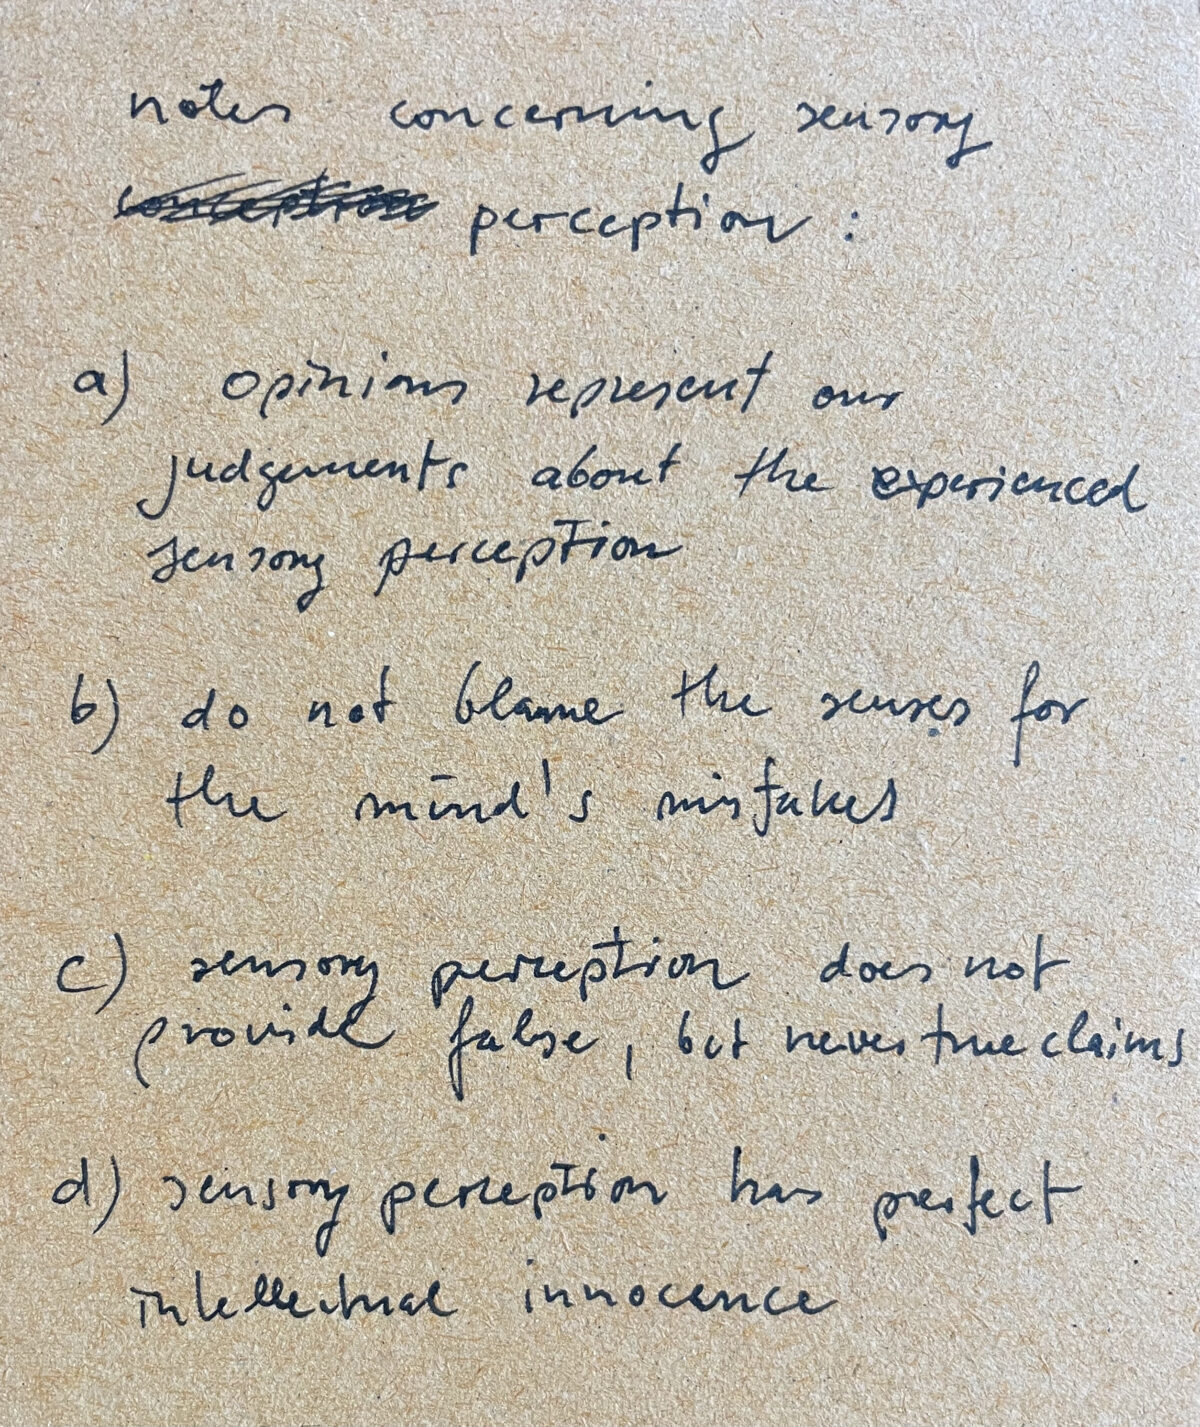 notes concerning sensory
perception :
a) opinions represent our
judgements about the experienced
sensory perception
b) do not blame the senses for
the mind's mistakes
c) sensory perception does not
provide false, but never true claims
d) sensory perception has perfect
intellectual innocence